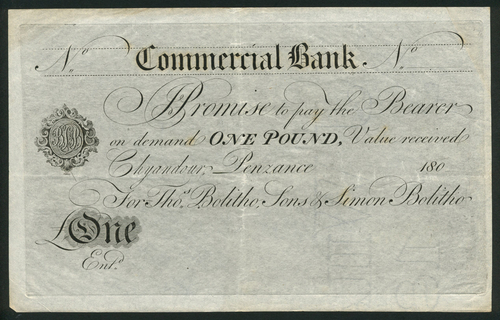 No Commercial Bank. No
I Promise to pay the Bearer
on demand ONE POUND, Value received
Chyandour, Penzance 180
For Thos. Bolitho, Sons & Simon Bolitho
£One
Entd.